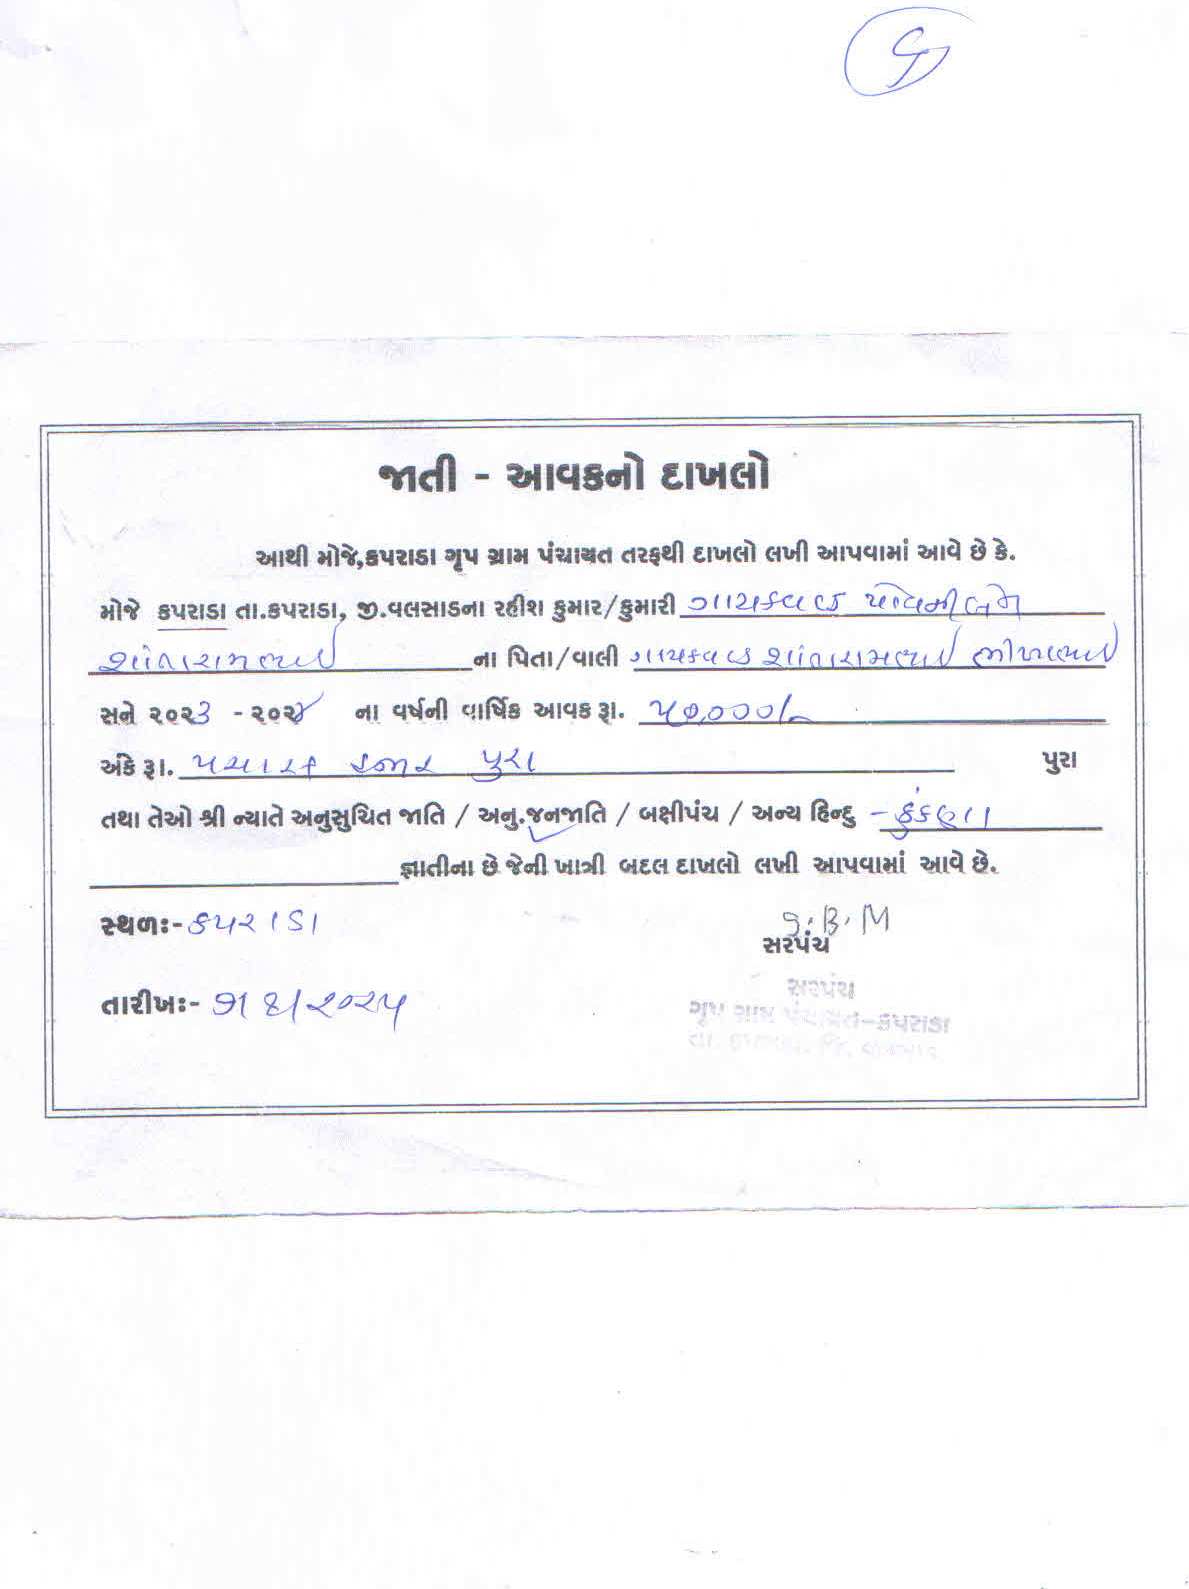 જાતી - આવકનો દાખલો
આથી મોજે,કપરાડા ગૃપ ગ્રામ પંચાયત તરફથી દાખલો લખી આપવામાં આવે છે કે.
મોજે કપરાડા તા.કપરાડા, જી.વલસાડના રહીશ કુમાર/કુમારી ગાયકવાડ
શાંતારામભાઈ ના પિતા/વાલી ગાયકવાડ શાંતારામભાઈ
સને ૨૦૨૩ - ૨૦૨૪ ના વર્ષની વાર્ષિક આવક રૂા. ૫૦,૦૦૦/-
અંકે રૂા. પચાસ હજાર પુરા પુરા
તથા તેઓ શ્રી ન્યાતે અનુસુચિત જાતિ / અનુ.જનજાતિ / બક્ષીપંચ / અન્ય હિન્દુ - કુંકણા
જ્ઞાતીના છે જેની ખાત્રી બદલ દાખલો લખી આપવામાં આવે છે.
સ્થળઃ- કપરાડા
S.B.M
સરપંચ
તારીખઃ- ૨૦૨૫
સરપંચ
ગૃપ ગ્રામ પંચાયત-કપરાડા